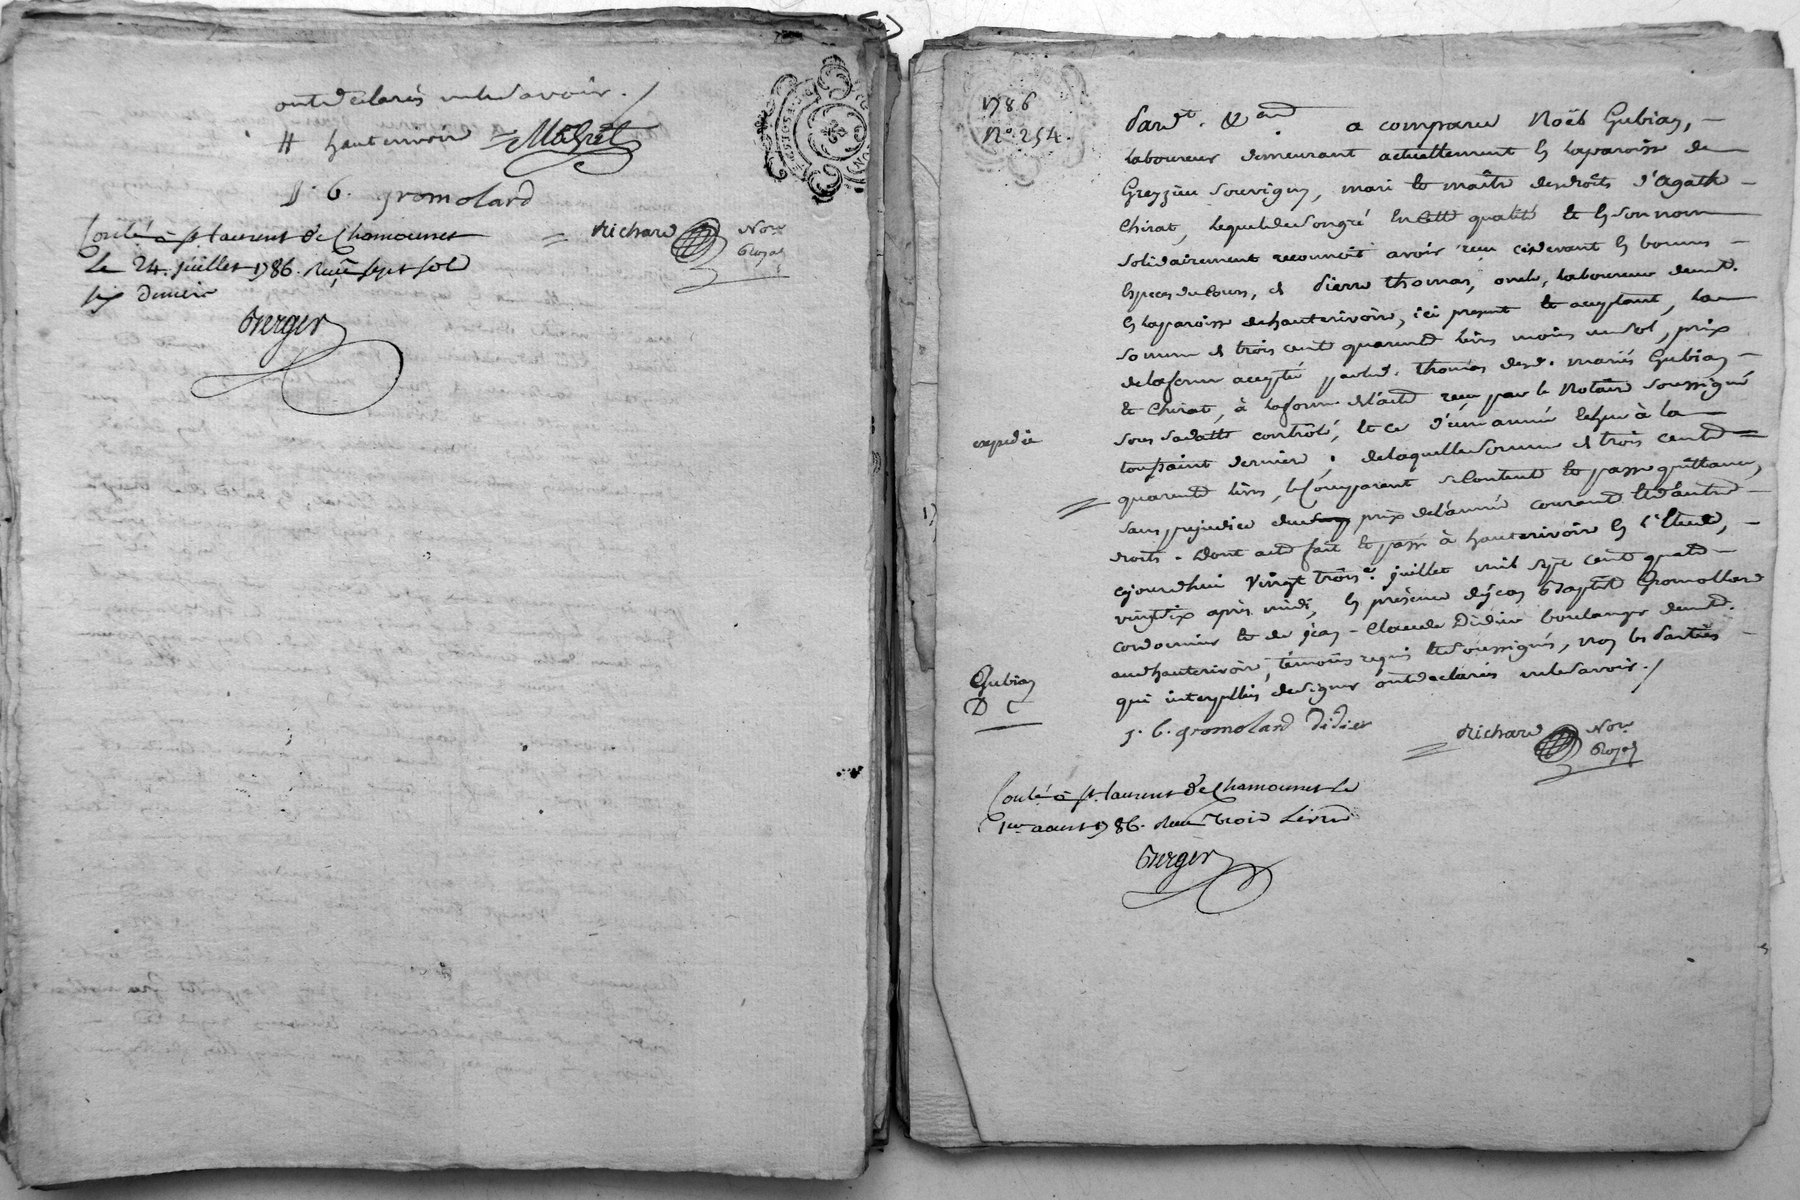 ont declarés ne le savoir ./
# hauterivoir Mazet
J. B. gromolard
Conlé à st laurent de Chamousset
Le 24. juillet 1786. Reçu sept sols
six deniers
Richard Nore
Royal
Berger
1786
N.o 254.
Pardt. &and a comparu Noël Gubian,
laboureur demeurant actuellement en la paroisse de
Greyzieu Souvigny, mari et maître des droits d'Agathe
Chirat, lequel de son gré en cette qualité et en son nom
solidairement reconnoit avoir reçu cidevant en bonnes
Especes du Cours, de Pierre Thomas, oncle, laboureur demt.
en la paroisse de hauterivoir, ici present et acceptant, la
somme de trois cent quarente livres moins un sol, prix
de la ferme acceptée par led. Thomas desd. mariés Gubian
et Chirat, à la forme de l'acte reçu par le Notaire soussigné
sous sa datte contrôlé, et ce d'une année échue à la
toussaint derniere ; de laquelle somme de trois cente
quarente livres, le Comparant se Contente et passe quittance,
sans prejudice du prix de l'année courante et d'autres
droits. Dont acte fait et passé à hauterivoir en l'Etude,
cejourdhui vingt troise. juillet mil sept cent quatre
vingt six après midi, en présence de jean Baptiste Gromollard
cordonnier et de jean-Claude Didier boulanger demts.
aud hauterivoir, témoins requis et soussignés, non les Parties
qui interpellées de signer ont declarées ne le savoir ./
expedié
Gubian
D C
J. B. gromolard Didier
Richard Nore
Royal
Conlé à st. laurent de Chamousset Le
1er aoust 1786. Reçu trois Livres
Berger